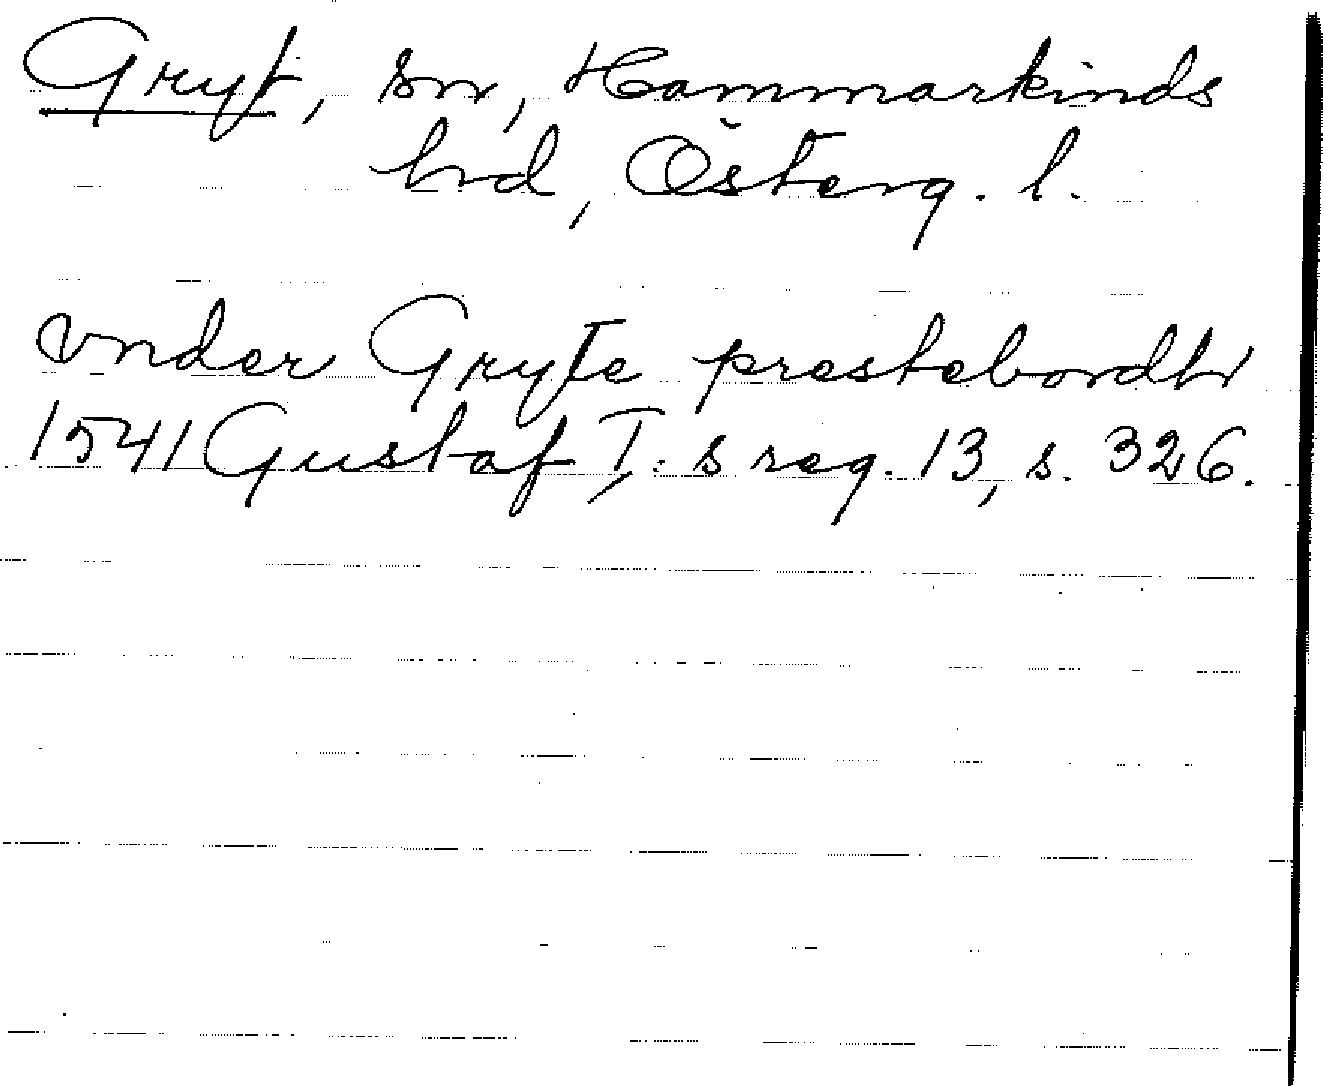 Gryt, sn, Hammarkinds
hrd, Österg. l.
vnder Gryte prestebordh
1541 Gustaf I:s reg. 13, s. 326.